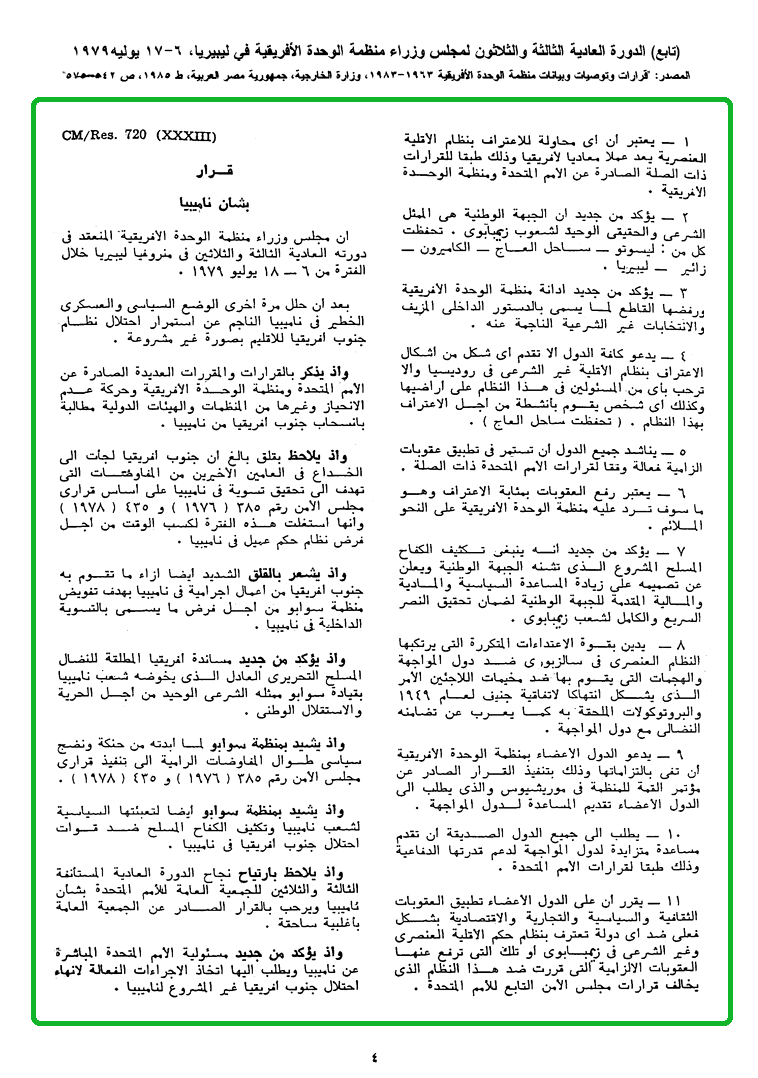 (تابع) الدورة العادية الثالثة والثلاثون لمجلس وزراء منظمة الوحدة الأفريقية في ليبيريا، ٦-١٧ يوليه ١٩٧٩
المصدر: "قرارات وتوصيات وبيانات منظمة الوحدة الأفريقية ١٩٦٣-١٩٨٣، وزارة الخارجية، جمهورية مصر العربية، ط ١٩٨٥، ص
١ — يعتبر أن أى محاولة للاعتراف بنظام الأقلية
العنصرية يعد عملا معاديا لأفريقيا وذلك طبقا للقرارات
ذات الصلة الصادرة عن الأمم المتحدة ومنظمة الوحدة
الأفريقية .
٢ — يؤكد من جديد ان الجبهة الوطنية هى الممثل
الشرعى والحقيقى الوحيد لشعوب زيمبابوى . تحفظت
كل من : ليسوتو — ساحل العاج — الكاميرون —
زائير — ليبيريا .
٣ — يؤكد من جديد ادانة منظمة الوحدة الأفريقية
ورفضها القاطع لما يسمى بالدستور الداخلى المزيف
والانتخابات غير الشرعية الناجمة عنه .
٤ — يدعو كافة الدول الا تقدم أى شكل من أشكال
الاعتراف بنظام الأقلية غير الشرعى فى روديسيا والا
ترحب بأى من المسئولين فى هذا النظام على أراضيها
وكذلك أى شخص يقوم بأنشطة من أجل الاعتراف
بهذا النظام . ( تحفظت ساحل العاج ) .
٥ — يناشد جميع الدول ان تستمر فى تطبيق عقوبات
الزامية فعالة وفقا لقرارات الأمم المتحدة ذات الصلة .
٦ — يعتبر رفع العقوبات بمثابة الاعتراف وهو
ما سوف ترد عليه منظمة الوحدة الأفريقية على النحو
الملائم .
٧ — يؤكد من جديد أنه ينبغى تكثيف الكفاح
المسلح المشروع الذى تشنه الجبهة الوطنية ويعلن
عن تصميمه على زيادة المساعدة السياسية والمادية
والمالية المقدمة للجبهة الوطنية لضمان تحقيق النصر
السريع والكامل لشعب زيمبابوى .
٨ — يدين بقوة الاعتداءات المتكررة التى يرتكبها
النظام العنصرى فى سالزبورى ضد دول المواجهة
والهجمات التى يقوم بها ضد مخيمات اللاجئين الأمر
الذى يشكل انتهاكا لاتفاقية جنيف لعام ١٩٤٩
والبروتوكولات الملحقة به كما يعرب عن تضامنه
النضالى مع دول المواجهة .
٩ — يدعو الدول الأعضاء بمنظمة الوحدة الأفريقية
أن تفى بالتزاماتها وذلك بتنفيذ القرار الصادر عن
مؤتمر القمة للمنظمة فى موريشيوس والذى يطلب الى
الدول الأعضاء تقديم المساعدة لدول المواجهة .
١٠ — يطلب الى جميع الدول الصديقة أن تقدم
مساعدة متزايدة لدول المواجهة لدعم قدرتها الدفاعية
وذلك طبقا لقرارات الأمم المتحدة .
١١ — يقرر ان على الدول الأعضاء تطبيق العقوبات
الثقافية والسياسية والتجارية والاقتصادية بشكل
فعلى ضد أى دولة تعترف بنظام حكم الأقلية العنصرى
وغير الشرعى فى زيمبابوى أو تلك التى ترفع عنها
العقوبات الالزامية التى قررت ضد هذا النظام الذى
يخالف قرارات مجلس الأمن التابع للأمم المتحدة .
CM/Res. 720 (XXXIII)
قرار
بشأن ناميبيا
ان مجلس وزراء منظمة الوحدة الأفريقية المنعقد فى
دورته العادية الثالثة والثلاثين فى منروفيا ليبيريا خلال
الفترة من ٦ — ١٨ يوليو ١٩٧٩ .
بعد أن حلل مرة أخرى الوضع السياسى والعسكرى
الخطير فى ناميبيا الناجم عن استمرار احتلال نظام
جنوب أفريقيا للاقليم بصورة غير مشروعة .
واذ يذكر بالقرارات والمقررات العديدة الصادرة عن
الأمم المتحدة ومنظمة الوحدة الأفريقية وحركة عدم
الانحياز وغيرها من المنظمات والهيئات الدولية مطالبة
بانسحاب جنوب أفريقيا من ناميبيا .
واذ يلاحظ بقلق بالغ ان جنوب أفريقيا لجأت الى
الخداع فى العامين الأخيرين من المفاوضات التى
تهدف الى تحقيق تسوية فى ناميبيا على أساس قرارى
مجلس الأمن رقم ٣٨٥ ( ١٩٧٦ ) و ٤٣٥ ( ١٩٧٨ )
وأنها استغلت هذه الفترة لكسب الوقت من أجل
فرض نظام حكم عميل فى ناميبيا .
واذ يشعر بالقلق الشديد أيضا ازاء ما تقوم به
جنوب أفريقيا من أعمال اجرامية فى ناميبيا بهدف تقويض
منظمة سوابو من أجل فرض ما يسمى بالتسوية
الداخلية فى ناميبيا .
واذ يؤكد من جديد مساندة أفريقيا المطلقة للنضال
المسلح التحريرى العادل الذى يخوضه شعب ناميبيا
بقيادة سوابو ممثله الشرعى الوحيد من أجل الحرية
والاستقلال الوطنى .
واذ يشيد بمنظمة سوابو لما أبدته من حنكة ونضج
سياسى طوال المفاوضات الرامية الى تنفيذ قرارى
مجلس الأمن رقم ٣٨٥ ( ١٩٧٦ ) و ٤٣٥ ( ١٩٧٨ ) .
واذ يشيد بمنظمة سوابو أيضا لتعبئتها السياسية
لشعب ناميبيا وتكثيف الكفاح المسلح ضد قوات
احتلال جنوب أفريقيا فى ناميبيا .
واذ يلاحظ بارتياح نجاح الدورة العادية المستأنفة
الثالثة والثلاثين للجمعية العامة للأمم المتحدة بشأن
ناميبيا ويرحب بالقرار الصادر عن الجمعية العامة
بأغلبية ساحقة .
واذ يؤكد من جديد مسئولية الأمم المتحدة المباشرة
عن ناميبيا ويطلب اليها اتخاذ الاجراءات الفعالة لانهاء
احتلال جنوب أفريقيا غير المشروع لناميبيا .
٤